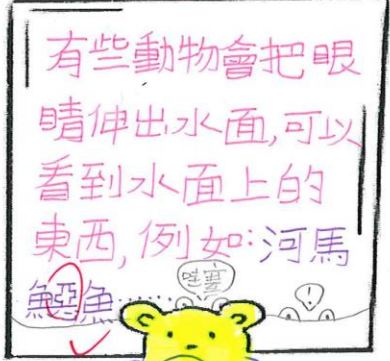 有些動物會把眼
睛伸出水面,可以
看到水面上的
東西,例如:河馬
鱷魚……
哇塞
!